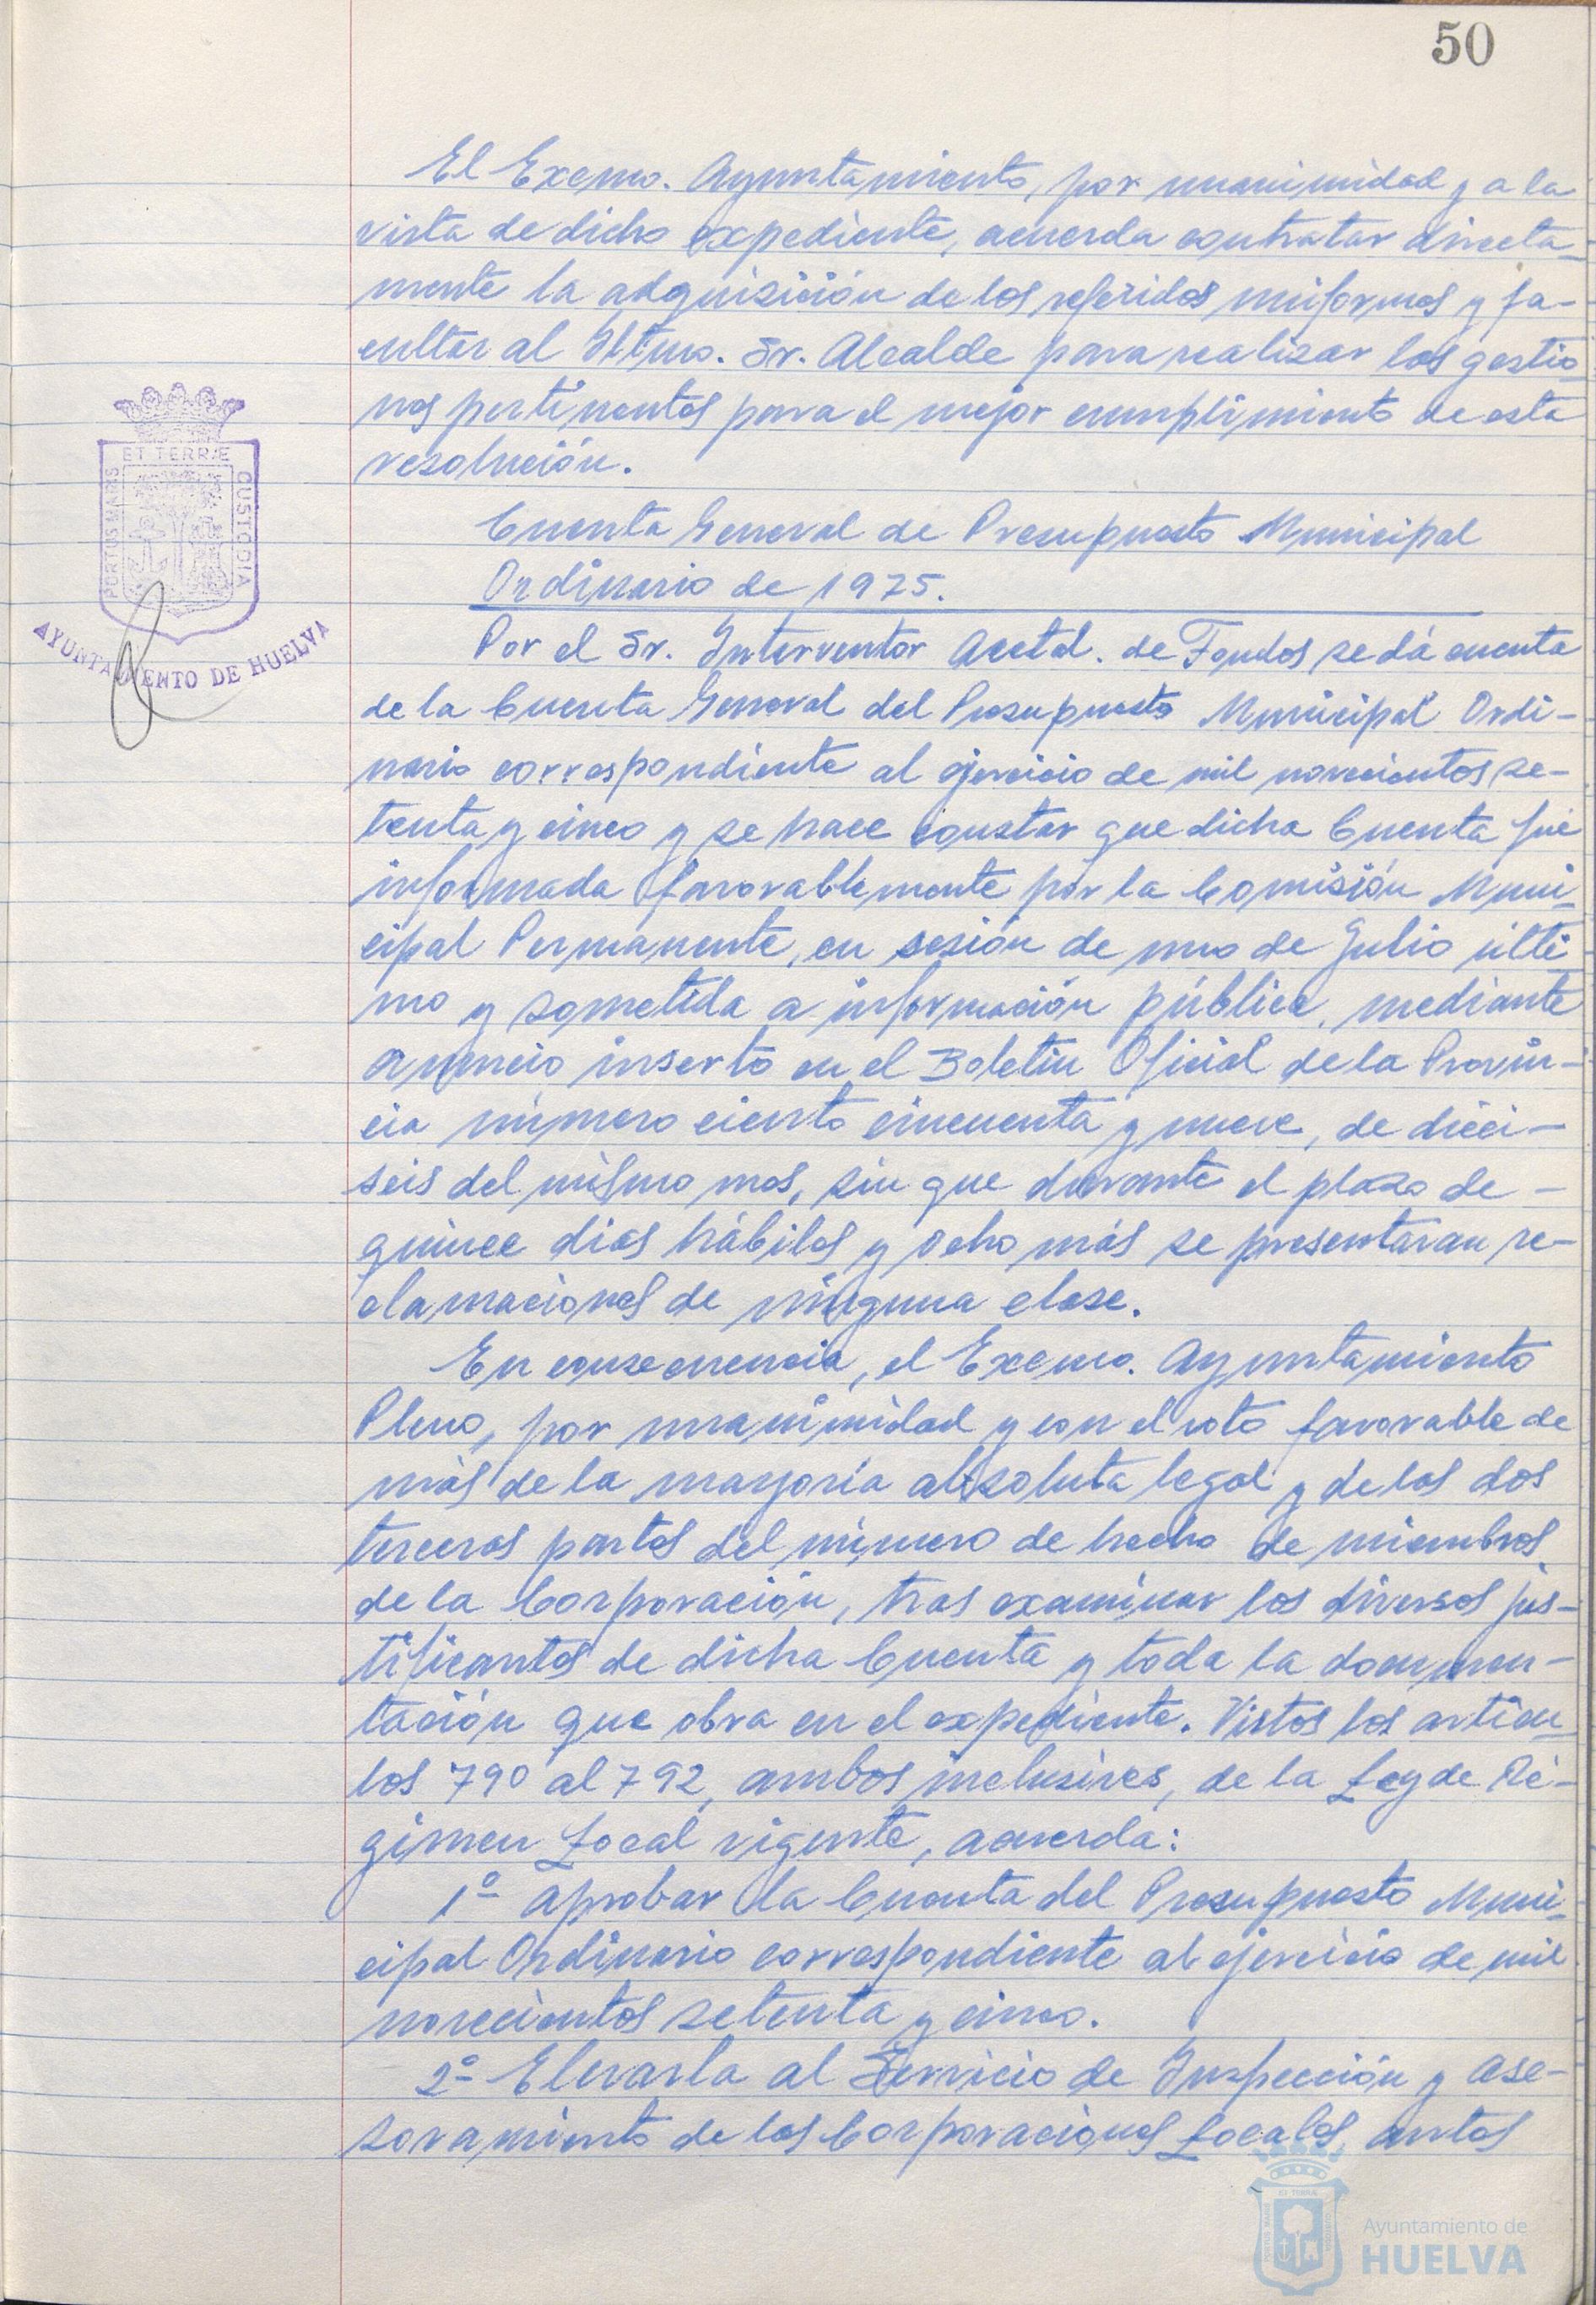 50
El Excmo. Ayuntamiento, por unanimidad y a la
vista de dicho expediente, acuerda contratar directa-
mente la adquisición de los referidos uniformes y fa-
cultar al Iltmo. Sr. Alcalde para realizar las gestio-
nes pertinentes para el mejor cumplimiento de esta
resolución.
Cuenta General de Presupuesto Municipal
Ordinario de 1975.
Por el Sr. Interventor Acctal. de Fondos se dá cuenta
de la Cuenta General del Presupuesto Municipal Ordi-
nario correspondiente al ejercicio de mil novecientos se-
tenta y cinco y se hace constar que dicha Cuenta fué
informada favorablemente por la Comisión Muni-
cipal Permanente, en sesión de uno de Julio últi-
mo y sometida a información pública, mediante
anuncio inserto en el Boletín Oficial de la Provin-
cia número ciento cincuenta y nueve, de dieci-
seis del mismo mes, sin que durante el plazo de -
quince dias hábiles y ocho más se presentaran re-
clamaciones de ninguna clase.
En consecuencia, el Excmo. Ayuntamiento
Pleno, por unanimidad y con el voto favorable de
más de la mayoría absoluta legal y de las dos
terceras partes del número de hecho de miembros
de la Corporación, tras examinar los diversos jus-
tificantes de dicha Cuenta y toda la documen-
tación que obra en el expediente. Vistos los artícu-
los 790 al 792, ambos inclusives, de la Ley de Ré-
gimen Local vigente, acuerda:
1º Aprobar la Cuenta del Presupuesto Muni-
cipal Ordinario correspondiente al ejercicio de mil
novecientos setenta y cinco.
2º Elevarla al Servicio de Inspección y Ase-
soramiento de las Corporaciones Locales, antes
PORTUS MARIS
ET TERRÆ
CUSTODIA
AYUNTAMIENTO DE HUELVA
Ayuntamiento de
HUELVA